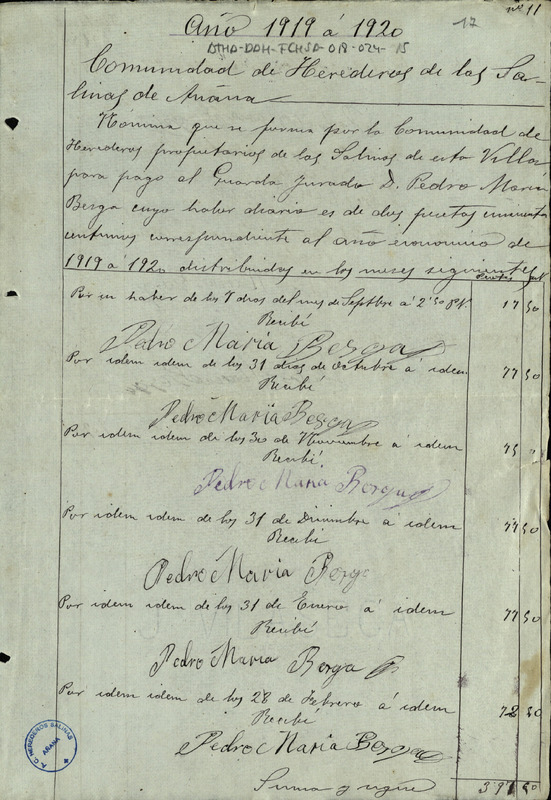 nº 11
17
Año 1919 á 1920
ATHA-DAH-FCHSA-018-024-15
Comunidad de Herederos de las Sa-
linas de Añana
Nómina que se forma por la Comunidad de
Herederos propietarios de las Salinas de esta Villa
para pago al Guarda Jurado D. Pedro María
Berga cuyo haber diario es de dos pesetas cincuenta
centimos correspondiente al año economico de
1919 á 1920 distribuidos en los meses siguientes
Pesetas
Por su haber de los 7 dias del mes de Septbre á 2'50 pts. 17 50
Recibí
Pedro María Berga
Por idem idem de los 31 dias de Octubre á idem 77 50
Recibí
Pedro María Berga
Por idem idem de los 30 de Noviembre á idem 75 "
Recibí
Pedro María Berga
Por idem idem de los 31 de Diciembre á idem 77 50
Recibí
Pedro María Berga
Por idem idem de los 31 de Enero á idem 77 50
Recibí
Pedro María Berga
Por idem idem de los 28 de Febrero á idem 72 50
Recibí
Pedro María Berga
Suma y sigue 397 50
A.C. HEREDEROS SALINAS
AÑANA